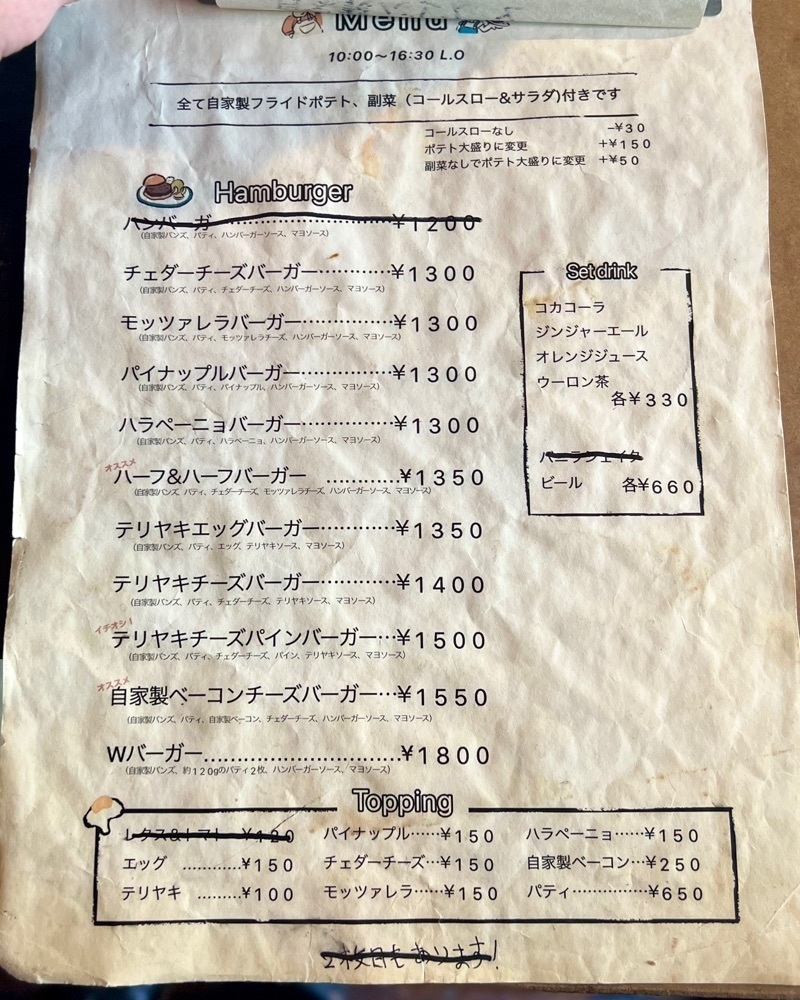 Menu
10:00〜16:30 L.O
全て自家製フライドポテト、副菜（コールスロー&サラダ)付きです
コールスローなし −¥30
ポテト大盛りに変更 +¥150
副菜なしでポテト大盛りに変更 +¥50
Hamburger
ハンバーガー……………………¥1200
(自家製バンズ、パティ、ハンバーガーソース、マヨソース)
チェダーチーズバーガー…………¥1300
(自家製バンズ、パティ、チェダーチーズ、ハンバーガーソース、マヨソース)
モッツァレラバーガー……………¥1300
(自家製バンズ、パティ、モッツァレラチーズ、ハンバーガーソース、マヨソース)
パイナップルバーガー……………¥1300
(自家製バンズ、パティ、パイナップル、ハンバーガーソース、マヨソース)
ハラペーニョバーガー……………¥1300
(自家製バンズ、パティ、ハラペーニョ、ハンバーガーソース、マヨソース)
オススメ
ハーフ&ハーフバーガー …………¥1350
(自家製バンズ、パティ、チェダーチーズ、モッツァレラチーズ、ハンバーガーソース、マヨソース)
テリヤキエッグバーガー…………¥1350
(自家製バンズ、パティ、エッグ、テリヤキソース、マヨソース)
テリヤキチーズバーガー…………¥1400
(自家製バンズ、パティ、チェダーチーズ、テリヤキソース、マヨソース)
イチオシ!
テリヤキチーズパインバーガー…¥1500
(自家製バンズ、パティ、チェダーチーズ、パイン、テリヤキソース、マヨソース)
オススメ
自家製ベーコンチーズバーガー…¥1550
(自家製バンズ、パティ、自家製ベーコン、チェダーチーズ、ハンバーガーソース、マヨソース)
Wバーガー..............................¥1800
(自家製バンズ、約120gのパティ2枚、ハンバーガーソース、マヨソース)
Set drink
コカコーラ
ジンジャーエール
オレンジジュース
ウーロン茶
各¥330
バニラシェイク
ビール 各¥660
Topping
レタス&トマト…¥120 パイナップル……¥150 ハラペーニョ……¥150
エッグ ...........¥150 チェダーチーズ…¥150 自家製ベーコン…¥250
テリヤキ .........¥100 モッツァレラ……¥150 パティ……………¥650
2枚目もあります!